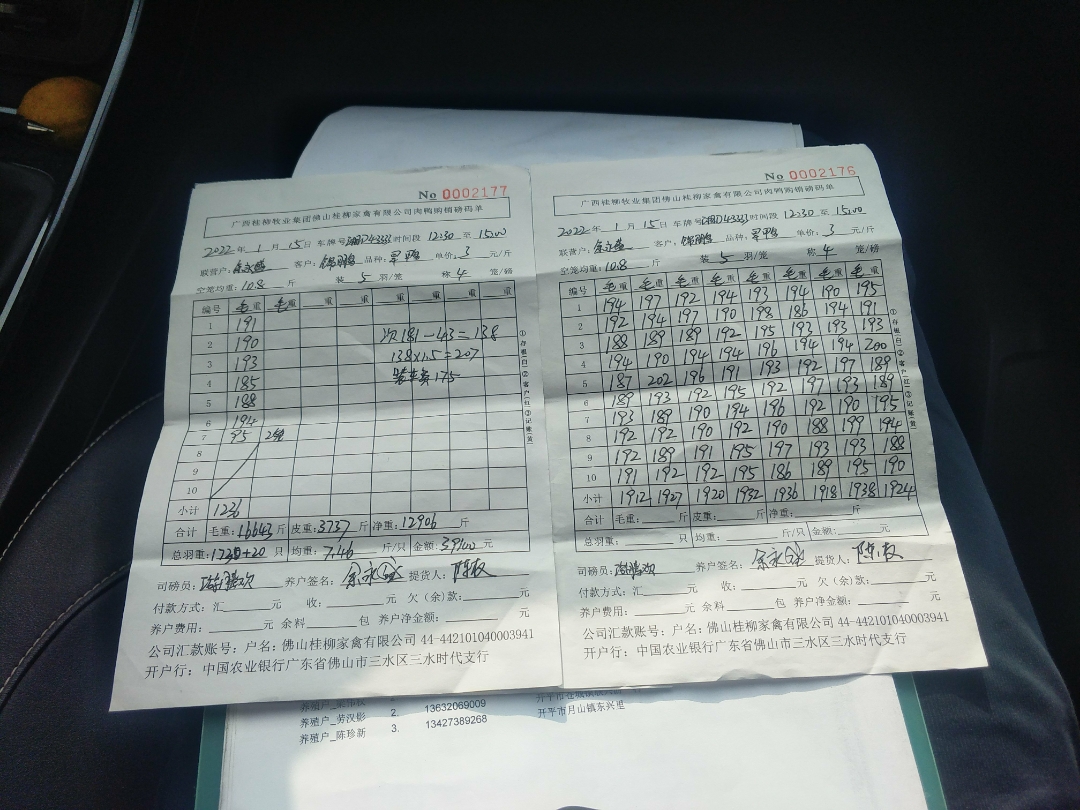 No 0002177
广西桂柳牧业集团佛山桂柳家禽有限公司肉鸭购销磅码单
2022年 1月 15日 车牌号 时间段 12:30 至 15:00
联营户: 客户: 锦鹏鸽 品种: 单价: 3 元/斤
空笼均重: 10.8 斤 装 5 羽/笼 称 4 笼/磅
编号 毛重 毛重 重 重 重 重 重 重
1 191
2 190 次181-43=138
3 193 138×1.5=207
4 185 装车费175
5 188
6 194
7 95 2笼
8
9
10
小计 1236
合计 毛重: 16643 斤 皮重: 3737 斤 净重: 12906 斤
总羽重: +20 只 均重: 7.46 斤/只 金额: 39100 元
司磅员: 养户签名: 余永盛 提货人: 陈权
付款方式: 汇 元 收: 元 欠(余)款: 元
养户费用: 元 余料 包 养户净金额: 元
公司汇款账号: 户名: 佛山桂柳家禽有限公司 44-442101040003941
开户行: 中国农业银行广东省佛山市三水区三水时代支行
①存根(白)②客户(红)③记账(黄)
No 0002176
广西桂柳牧业集团佛山桂柳家禽有限公司肉鸭购销磅码单
2022年 1月 15日 车牌号 时间段 12:30 至 15:00
联营户: 余永盛 客户: 锦鹏鸽 品种: 单价: 3 元/斤
空笼均重: 10.8 斤 装 5 羽/笼 称 4 笼/磅
编号 毛重 毛重 毛重 毛重 毛重 毛重 毛重 毛重
1 194 197 192 194 193 194 190 195
2 192 194 197 190 198 186 194 191
3 188 189 189 192 195 193 193 193
4 194 190 194 194 196 194 194 200
5 187 202 196 191 193 192 197 189
6 189 193 192 195 192 197 193 189
7 193 189 190 194 196 192 190 195
8 192 192 190 192 190 188 199 194
9 192 189 191 195 197 193 193 188
10 191 192 192 195 186 189 195 190
小计 1912 1927 1920 1932 1936 1918 1938 1924
合计 毛重: 斤 皮重: 斤 净重: 斤
总羽重: 只 均重: 斤/只 金额: 元
司磅员: 养户签名: 余永盛 提货人: 陈权
付款方式: 汇 元 收: 元 欠(余)款: 元
养户费用: 元 余料 包 养户净金额: 元
公司汇款账号: 户名: 佛山桂柳家禽有限公司 44-442101040003941
开户行: 中国农业银行广东省佛山市三水区三水时代支行
①存根(白)②客户(红)③记账(黄)
养殖户_劳汉影 2. 13632069009
养殖户_陈珍新 3. 13427389268 开平市月山镇东兴里